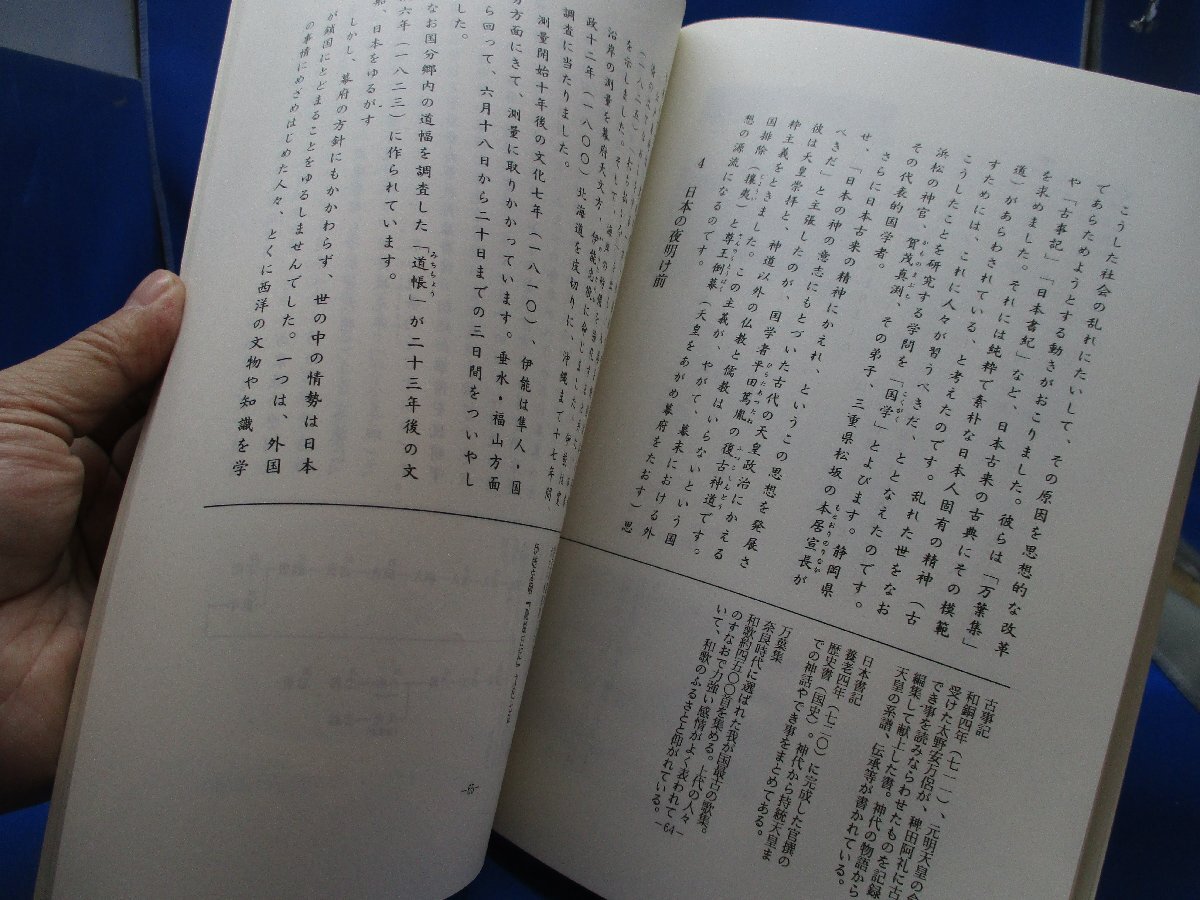 4 日本の夜明け前
こうした社会の乱れにたいして、その原因を思想的な改革
であらためようとする動きがおこりました。彼らは「万葉集」
や「古事記」「日本書紀」など、日本古来の古典にその模範
を求めました。それには純粋で素朴な日本人固有の精神(古
道)があらわされている、と考えたのです。乱れた世をなお
すためには、これに人々が習うべきだ、ととなえたのです。
こうしたことを研究する学問を「国学」とよびます。静岡県
浜松の神官、賀茂真渕、その弟子、三重県松坂の本居宣長が
その代表的国学者。
さらに日本古来の精神にかえれ、というこの思想を発展さ
せ、「日本の神の意志にもとづいた古代の天皇政治にかえる
べきだ」と主張したのが、国学者平田篤胤の復古神道です。
彼は天皇崇拝と、神道以外の仏教と儒教はいらないという国
粋主義をときました。この主義が、やがて、幕末における外
国排除(攘夷)と尊王倒幕(天皇をあがめ幕府をたおす)思
想の源流になるのです。
古事記
和銅四年(七一一)、元明天皇の命
受けた太野安万侶が、稗田阿礼に古
でき事を読みならわせたものを記録
編集して献上した書。神代の物語から
天皇の系譜、伝承等が書かれている。
日本書記
養老四年(七二〇)に完成した官撰の
歴史書(国史)。神代から持統天皇ま
での神話やでき事をまとめてある。
万葉集
奈良時代に選ばれた我が国最古の歌集。
和歌約四五〇〇首を集める。上代の人々
のすなおで力強い感情がよく表われて
いて、和歌のふるさと仰がれている。
-64-
沿岸の測量を幕府天文方、伊能忠敬に命じました。
政十二年(一八〇〇)北海道を皮切りに、沖縄まで十七年間
調査に当たりました。
測量開始十年後の文化七年(一八一〇)、伊能は隼人・国
分方面にきて、測量に取りかかっています。垂水・福山方面
ら回って、六月十八日から二十日までの三日間をついやし
した。
なお国分郷内の道幅を調査した「道帳」が二十三年後の文
六年(一八二三)に作られています。
日本をゆるがす
しかし、幕府の方針にもかかわらず、世の中の情勢は日本
が鎖国にとどまることをゆるしませんでした。一つは、外国
の事情にめざめはじめた人々、とくに西洋の文物や知識を学
-65-